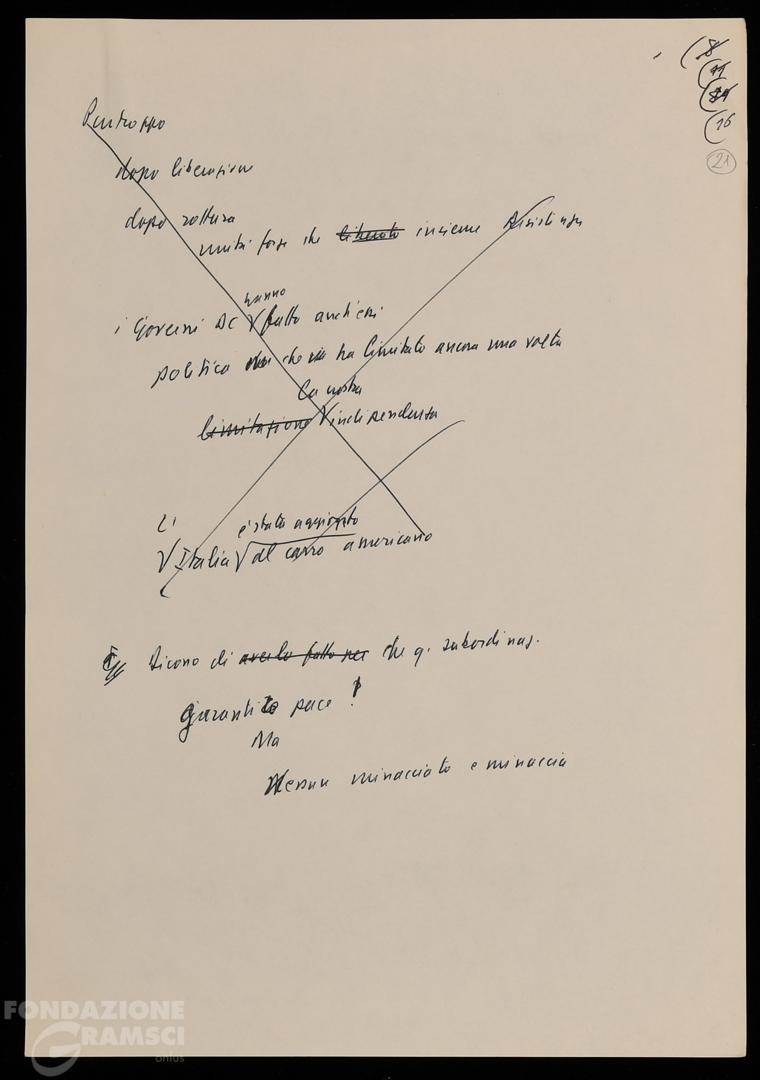 (8
(11
(16
21
Purtroppo
dopo liberazione
dopo rottura
unità forze che liberato insieme
hanno
i Governi DC √ fatto anch'essi
politica che ha limitato ancora una volta
la nostra
limitazione √ indipendenza
L' è stata aggiogata
√ Italia √ al carro americano
E Dicono di averlo fatto per che q. subordinaz.
Garantito pace !
Ma
Nessun minacciato e minaccia
FONDAZIONE
GRAMSCI
onlus